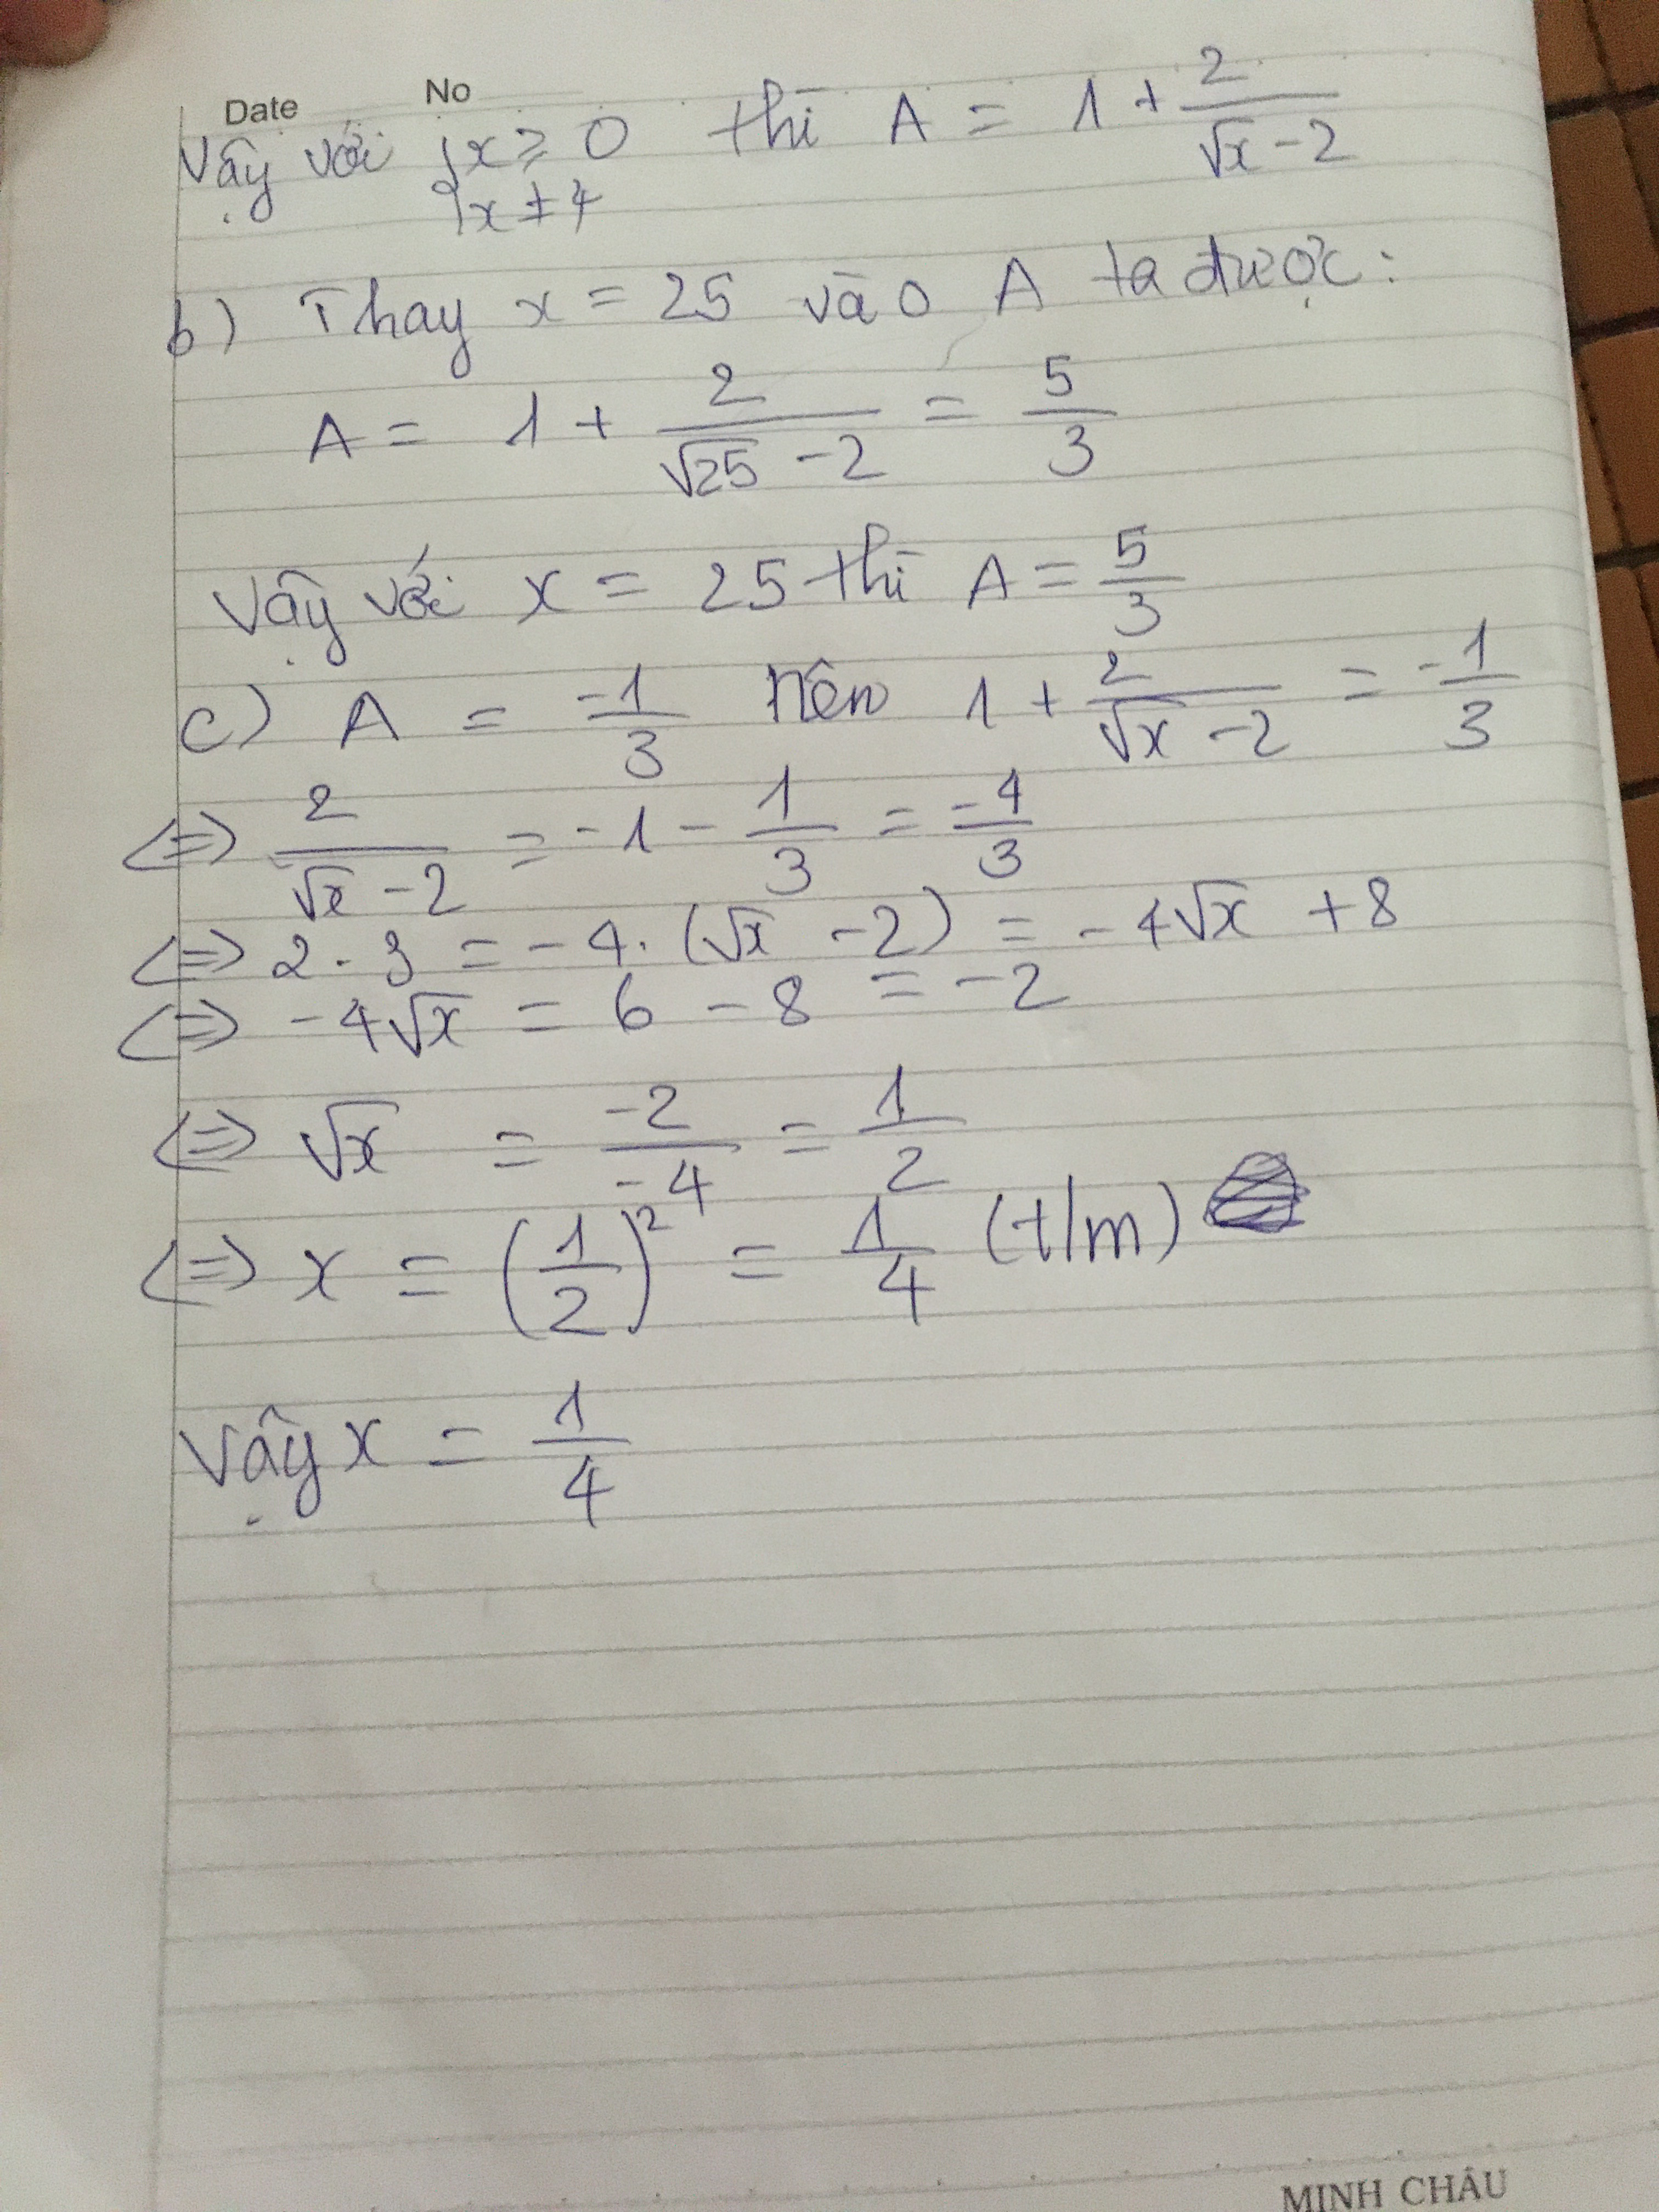 Date No
Vậy với { x ≥ 0 thì A = 1 + 2/(√x - 2)
{ x ≠ 4
b) Thay x = 25 vào A ta được:
A = 1 + 2/(√25 - 2) = 5/3
Vậy với x = 25 thì A = 5/3
c) A = -1/3 Nên 1 + 2/(√x - 2) = -1/3
<=> 2/(√x - 2) = -1 - 1/3 = -4/3
<=> 2 . 3 = -4. (√x - 2) = -4√x + 8
<=> -4√x = 6 - 8 = -2
<=> √x = -2/-4 = 1/2
<=> x = (1/2)² = 1/4 (t/m)
Vậy x = 1/4
MINH CHÂU